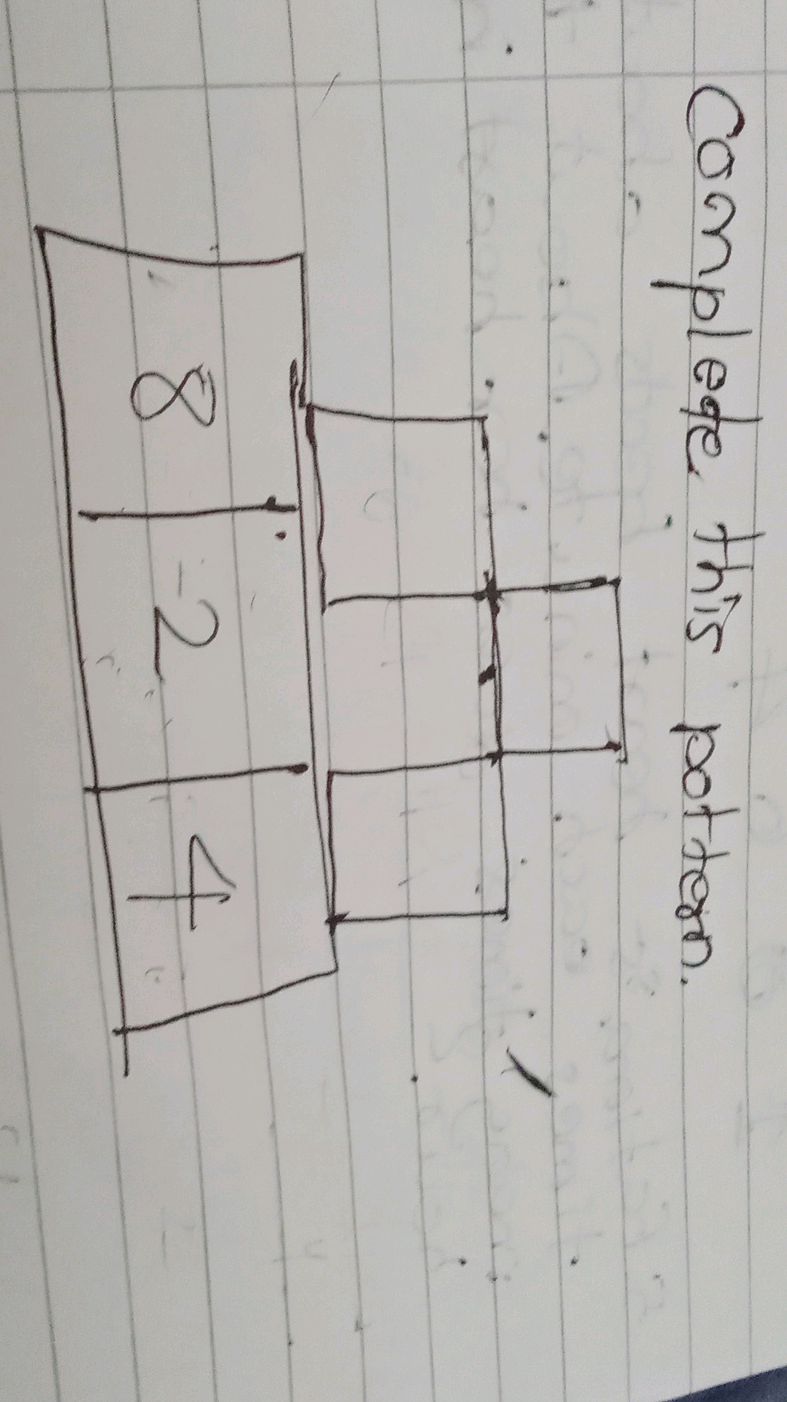 Complete this pattern.
8 -2 4